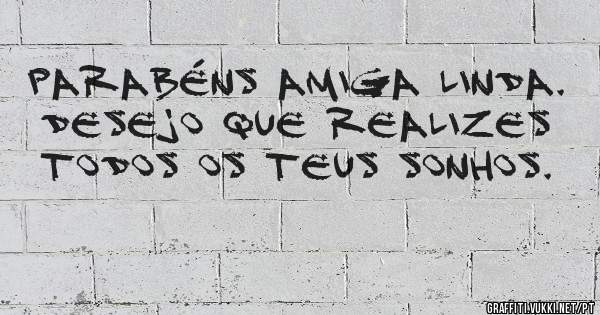 PARABÉNS AMIGA LINDA.
DESEJO QUE REALIZES
TODOS OS TEUS SONHOS.
GRAFFITI.VUKKI.NET/PT